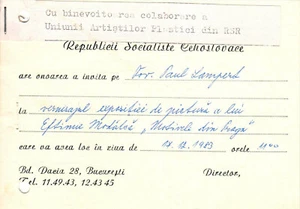 Cu binevoitoarea colaborare a
Uniunii Artiștilor Plastici din RSR
Republicii Socialiste Cehoslovace
are onoarea a invita pe Tov. Paul Lampert
la vernisajul expoziției de pictură a lui
Eftimie Modâlcă „Motivele din Praga"
care va avea loc în ziua de 12.1983 orele
Bd. Dacia 28, București
Director,
Tel. 11.49.43, 12.43.45